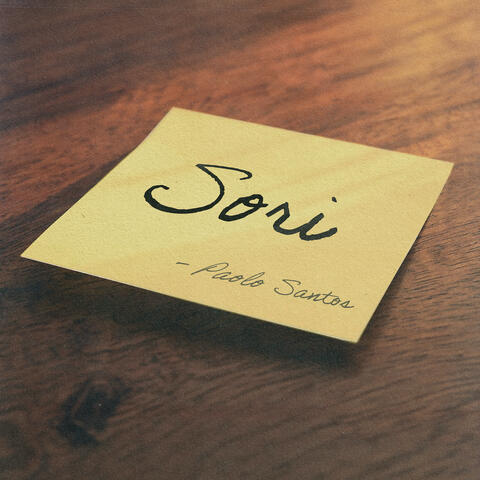 Sori
- Paolo Santos